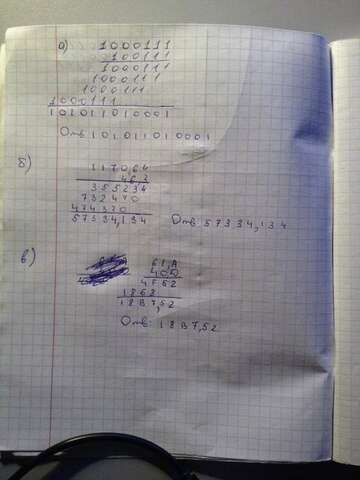 а) 1000111
100111
1000111
1000111
1000111
1000111
101011010001
Отв 101011010001
Б) 1170,64
46,3
355234
732470
474320
57334,134
Отв 57334,134
в) 61,A
40,D
4F52
1868
18B7,52
Отв: 18B7,52